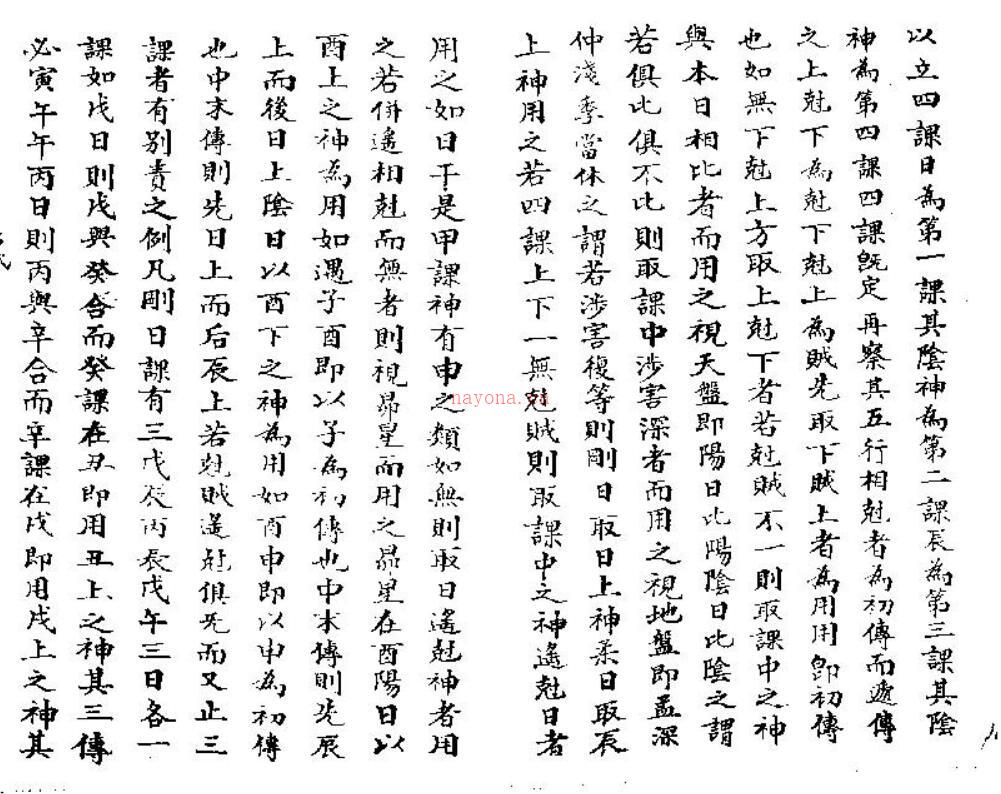 以立四課日為第一課其陰神為第二課辰為第三課其陰
神為第四課四課既定再察其五行相尅者為初傳而遞傳
之上尅下為尅下尅上為賊先取下賊上者為用用即初傳
也如無下尅上方取上尅下者若尅賊不一則取課中之神
與本日相比者而用之視天盤即陽日比陽陰日比陰之謂
若俱比俱不比則取課中涉害深者而用之視地盤即孟深
仲淺季當休之謂若涉害復等則剛日取日上神柔日取辰
上神用之若四課上下一無尅賊則取課中之神遙尅日者
用之如日干是甲課神有申之類如無則取日遙尅神者用
之若併遙相尅而無者則視昴星而用之昴星在酉陽日以
酉上之神為用如遇子酉即以子為初傳也中末傳則先辰
上而後日上陰日以酉下之神為用如酉申即以申為初傳
也中末傳則先日上而后辰上若尅賊遙尅俱无而又止三
課者有別責之例凡剛日課有三戊辰丙辰戊午三日各一
課如戊日則戊與癸合而癸課在丑即用丑上之神其三傳
必寅午午丙日則丙與辛合而辛課在戌即用戌上之神其
nayona.cn